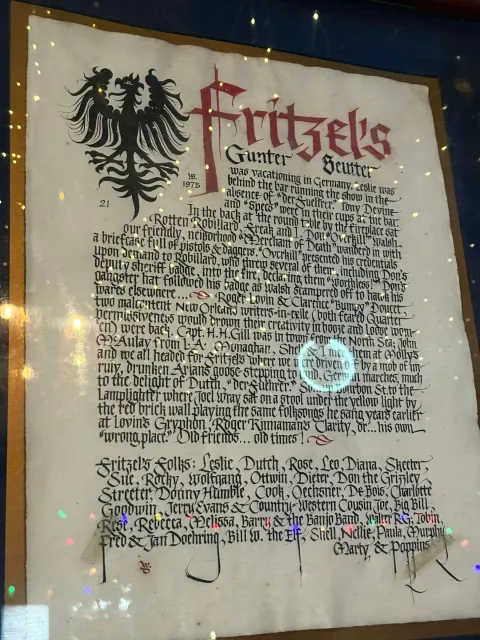 Fritzel's
Gunter Seutter
was vacationing in Germany. Leslie was
behind the bar running the show in the
absence of "der Fuehrer." Tony Devine
and "Speed" were in their cups at the bar.
W.
1975
21
In the back at the round table by the fireplace sat
Rotten Robillard, Freak and I. Don "Overkill" Walsh,
our friendly, neighborhood "Merchant of Death" wandered in with
a briefcase full of pistols & daggers. "Overkill" presented his credentials
upon demand to Robillard, who threw several of them, including Don's
deputy sheriff badge, into the fire, declaring them "worthless!" Don's
gangster hat followed his badge as Walsh scampered off to hawk his
wares elsewhere... Roger Lovin & Clarence "Bumpy" Doucet,
two malcontent New Orleans writers-in-exile (both feared Quarter
permissiveness would drown their creativity in booze and loose wom-
en) were back. Capt. H.H. Gill was in town from the North Sea; John
McAulay from L.A. Monaghan, She & I met them at Molly's
and we all headed for Fritzel's where we were driven off by a mob of un-
ruly, drunken Arians goose stepping to loud, German marches, much
to the delight of Dutch, "der Führer." Bourbon St. to the
Lamplighter where Joel Wray sat on a stool under the yellow light by
the red brick wall playing the same folksongs he sang years earlier
at Lovin's Gryphon, Roger Kinnaman's Clarity, or... his own
"wrong place." Old friends... old times!
Fritzel's Folks: Leslie, Dutch, Rose, Leo, Diana, Skeeter,
Sue, Rocky, Wolfgang, Ottwin, Dieter, Don the Grizley
Streeter, Donny Humble, Cook, Oechsner, De Bois, Charlotte
Goodwin, Jerry Evans & Country-Western Cousin Joe, Big Bill,
Rese, Rebecca, Melissa, Barry & the Banjo Band, Walter R.G. Tobin,
Fred & Jan Doehring, Bill W. the Elf, Shell, Nellie, Paula, Murphy
Marty & Poppins